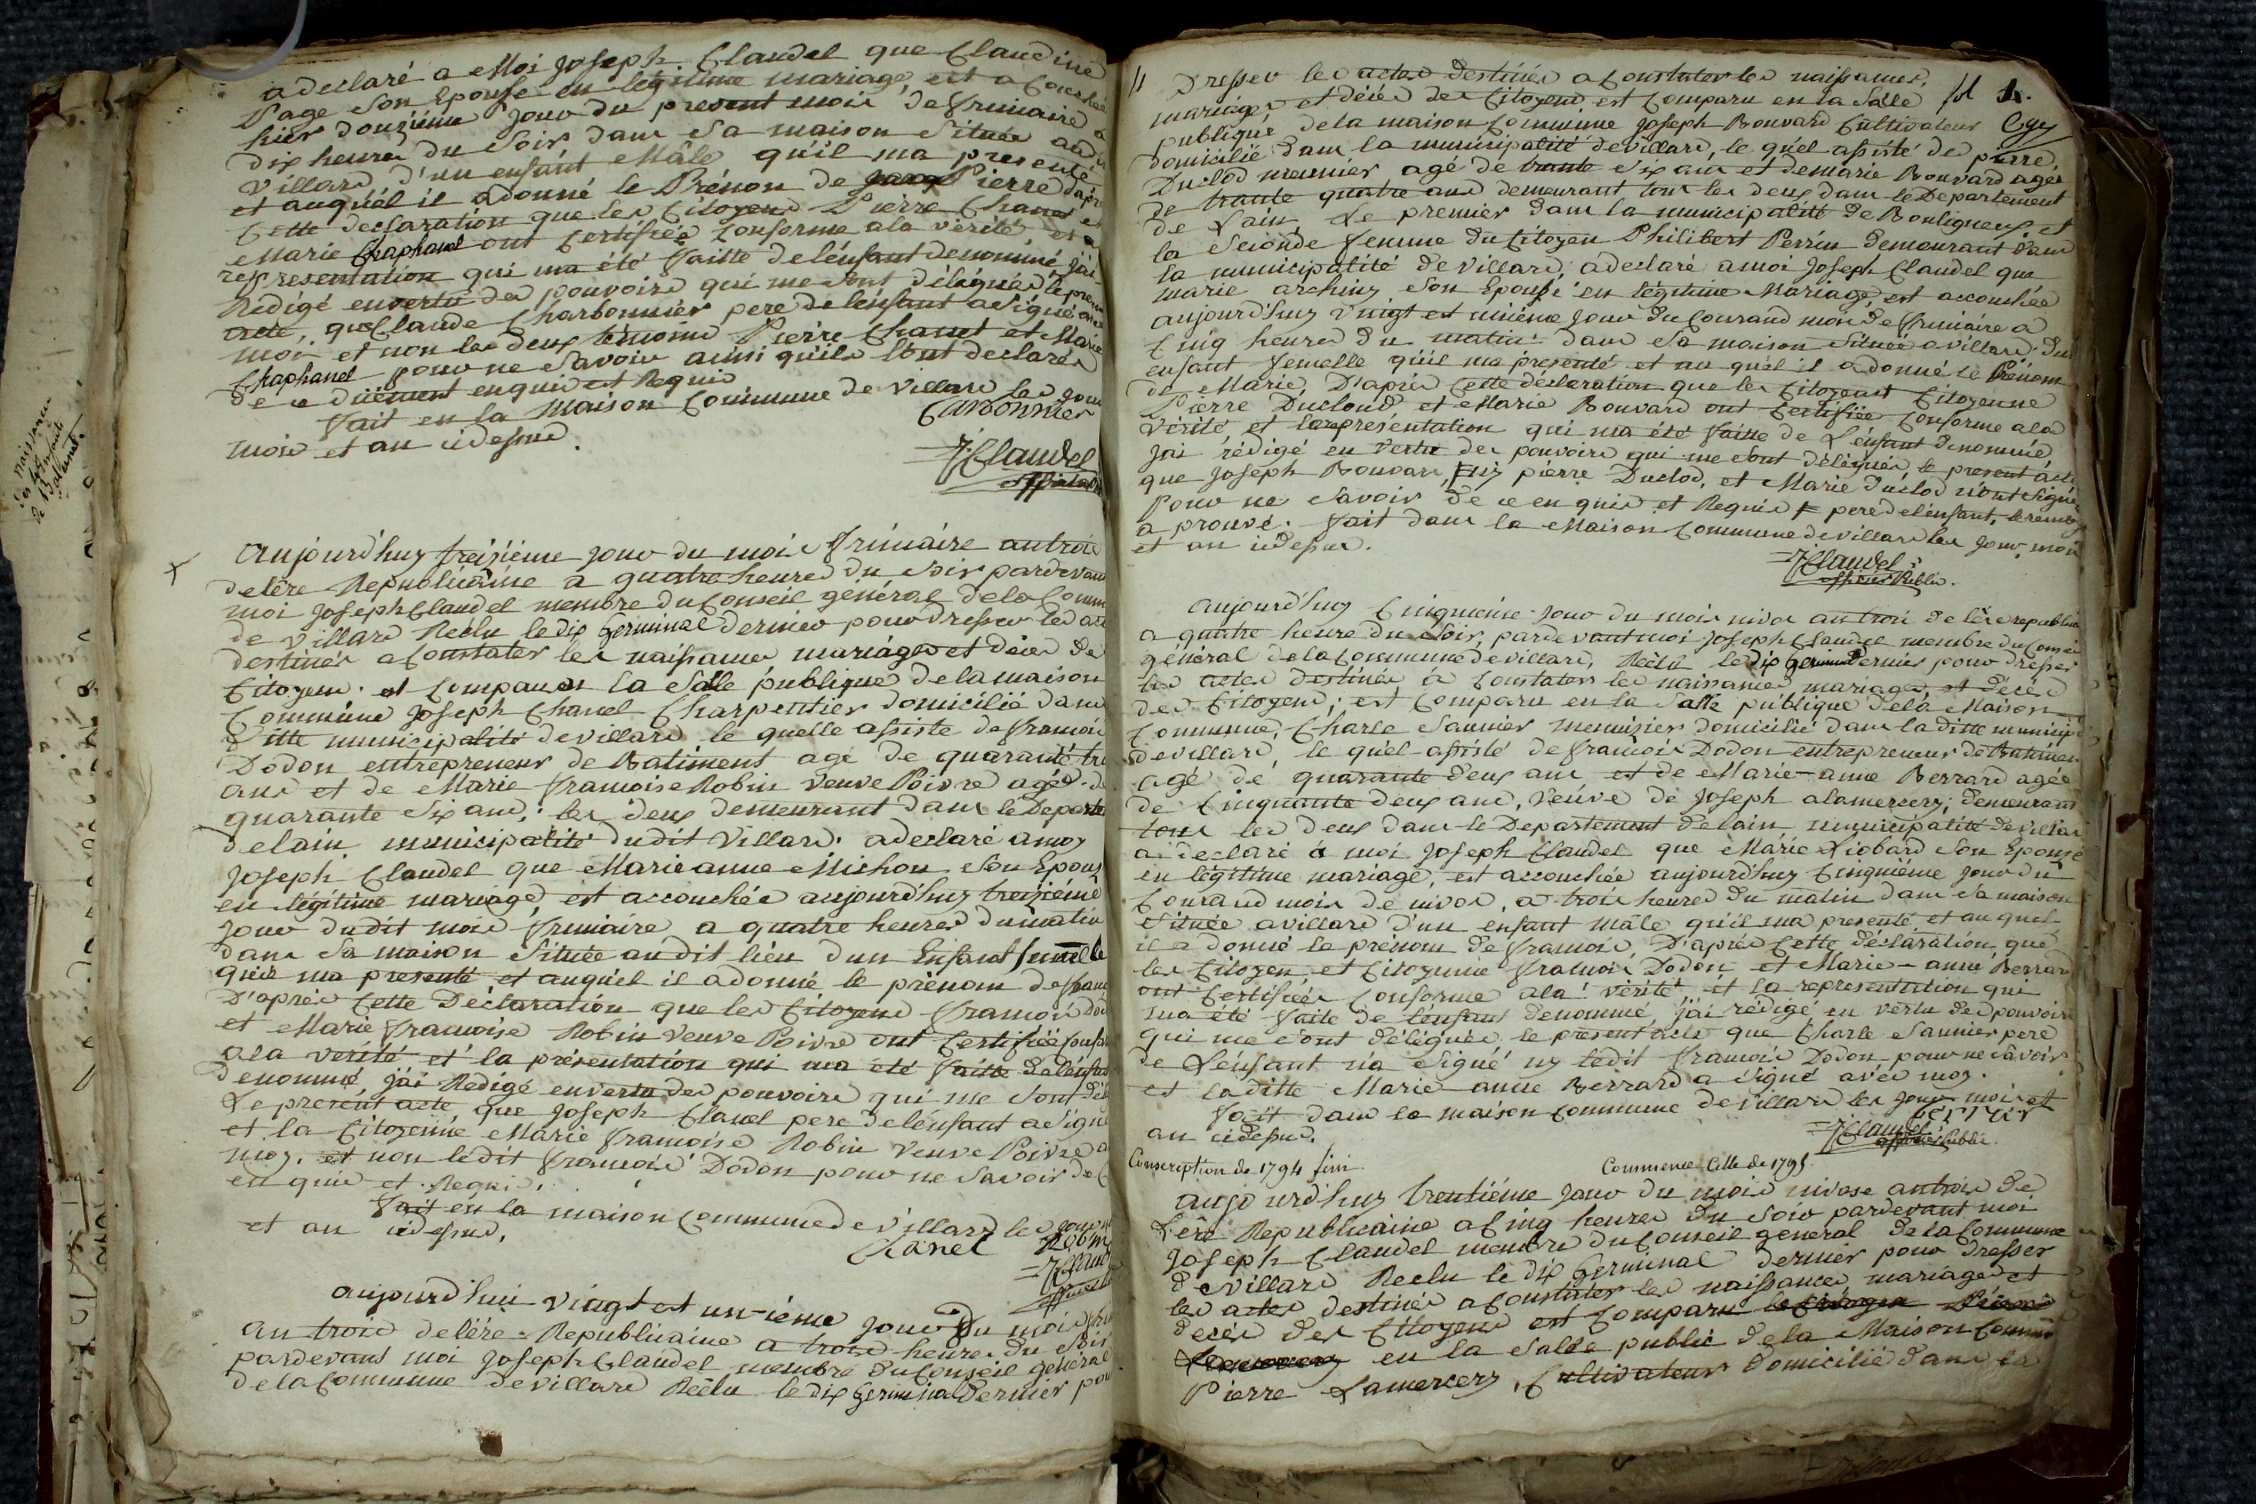 a declaré a Moi Joseph Claudel que Claudine
Page Son Epouse en légitime mariage, est acouchée
hier douzième jour du present mois de frimaire a
dix heures du Soir dans Sa maison Située audit
Villard d'un enfant Mâle qu'il ma presenté
et auquél il adonné le Prénom de Pierre d'après
Cette declaration que les Citoyens Pierre Chanet et
Marie Chaphanel ont Certifiée Conforme ala vérité, et a
representation qui ma été faitte de l'énfant denommé, j'ai
Rédigé envertu des pouvoirs qui me sont délégués le present
acte, que Claude Charbonnier pere de lénfant a Signé avec
moi et non les deux témoins Pierre Chanet et Marie
Chaphanel pour ne Savoir ainsi qu'ils l'ont declarés
de ce düement enquis et Requis
Fait en la Maison Commune de Villars les jour
mois et an cidessus.
Carbonnier
J Claudel
officier
naissance
des Enfants
aujourd'huy treizième jour du mois frimaire an trois
delère Républicaine a quatre heures du soir pardevant
moi Joseph Claudel membre du Conseil général dela Comm
de Villars Reélu le dix Germinal dernier pour dresser les actes
destinés a Constater les naissances mariages et décés de
Citoyens. est Comparu en la Salle publique dela maison
Commune Joseph Chanel Charpentier domicilié dans
Ditte municipalité devillars le quelle assiste de françois
Dodon entrepreneur de Batiment agé de quarante trois
ans et de Marie françoise Robin veuve Poivre agée de
quarante Six ans; les deux demeurant dans le Departe
delain municipalité dudit Villars. a declaré a moy
Joseph Claudel que Marie anne Michon Son Epouse
en légitime mariage, est accouchée aujourd'huy treizième
jour dudit mois frimaire a quatre heures dumatin
dans Sa maison Située audit lieu dun Enfant femelle
qu'il ma presenté et auquél il adonné le prénom defrançoise
D'après Cette Déclaration que les Citoyens françois Dodon
et Marie françoise Robin veuve Poivre ont Certifiée Conforme
ala verité et la présentation qui ma été faitte delénfant
denommé, j'ai Rédigé envertu des pouvoirs qui me sont délé
Le present acte, que Joseph Chanel pere delénfant a Signé
et la Citoyenne Marie françoise Robin veuve Poivre a
moy. et non ledit françois Dodon pour ne Savoir de Ce
en quis et Requis.
Fait en la maison Commune de Villars les jour
et an cidessus.
Chanel Robin
J Claudel
aujourd'hui vingt et un-ième jour Du mois frim
an trois delère Républicaine a trois heures du soir
pardevant moi Joseph Claudel membre du Conseil général
dela Commune devillars Réélu le dix Germinal Dernier pour
Dresser les actes destinés a Constater les naissances,
mariages et décés des Citoyens est Comparu en la Salle
publique dela maison Commune Joseph Bouvard Cultivateur
domicilié dans la municipalité devillars, le quél assisté de pierre
Duclod meunier agé de trante Six ans et demarie Bouvard agée
de trante quatre ans demeurant tous les deux dans le Departement
de Lain Le premier dans la municipalité de Bouligneux et
la Seconde femme du Citoyen Philibert Perrin demeurant dans
la municipalité devillars, a declaré a moi Joseph Claudel que
marie archiny Son Epouse en légitime Mariage, est accouchée
aujourd'huy Vingt et unième jour du Courand mois de frimaire a
Cinq heures du matin dans Sa maison Située a villars d'un
enfant femelle qu'il ma presenté et au quél il adonné le Prénom
de Marie D'après Cette déclaration que les Citoyens Citoyenne
Pierre Ducloud et Marie Bouvard ont Certifiée Conforme ala
Vérité et lareprésentation qui ma été faitte de L'énfant denommé,
jai rédigé en vertu des pouvoirs qui me sont délégués le present acte
que Joseph Bouvard, ny pierre Duclod, et Marie Duclod n'ont Signé
Pour ne Savoir de ce en quis et Requis pere delénfant, le renvoy
a prouvé. Fait dans la Maison Commune devillars les jour, mois
et an cidessus.
J Claudel
officier Public.
aujourd'huy Cinquième jour du mois nivos an trois de lère republic
a quatre heure du Soir, pardevant moi Joseph Claudel membre du Conseil
général dela Commune devillars, Réélu le dix Germinal Dernier pour dresser
les actes destinés a Constater les naissances mariages, et décés
des Citoyens; est Comparu en la Salle publique dela Maison
Commune, Charle Saunier menuisier domicilié dans laditte municip
devillars, le quél assisté de françois Dodon entrepreneur de Batimen
agé de quarante deux ans et de Marie-anne Berrard agée
de Cinquante deux ans, veuve de Joseph alamercery; demeurant
tous les deux dans le Departement delain municipalité de villars
a déclaré a moi Joseph Claudel que Marie Liobard Son Epouse
en légitime mariage, est accouchée aujourd'huy Cinquième jour du
Courand mois de nivos, a trois heures du matin dans Sa maison
Située avillars d'un enfant mâle qu'il ma presenté et au quel
il a donné le prénom de françois, D'après Cette déclaration que
les Citoyen et Citoyenne françois Dodon et Marie-anne Berrard
ont Certifiées Conforme ala vérité et la representation qui
ma été faite de lenfant denommé, j'ai rédigé en vertu des pouvoirs
qui me sont délégués le present acte que Charle Saunier pere
de L'énfant n'a Signé ny ledit françois Dodon pour ne savoir
et laditte Marie anne Berrard a Signé avéc moy.
Fait dans la maison Commune de villars les jour mois et
an cidessus.
J Claudel
officier Public
Conscription de 1794 fini
Commence Celle de 1795
aujourd'huy trentième jour du mois nivose antrois de
L'ère Republicaine a Cinq heures du Soir pardevant moi
Joseph Claudel membre du Conseil general dela Commune
de Villars Reelu le dix Germinal dernier pour dresser
les actes destinés a Constater les naissances mariages et
decés des Citoyens est Comparu
en la Salle public dela Maison Commune
Pierre Lamercery, Cultivateur domicilié dans la